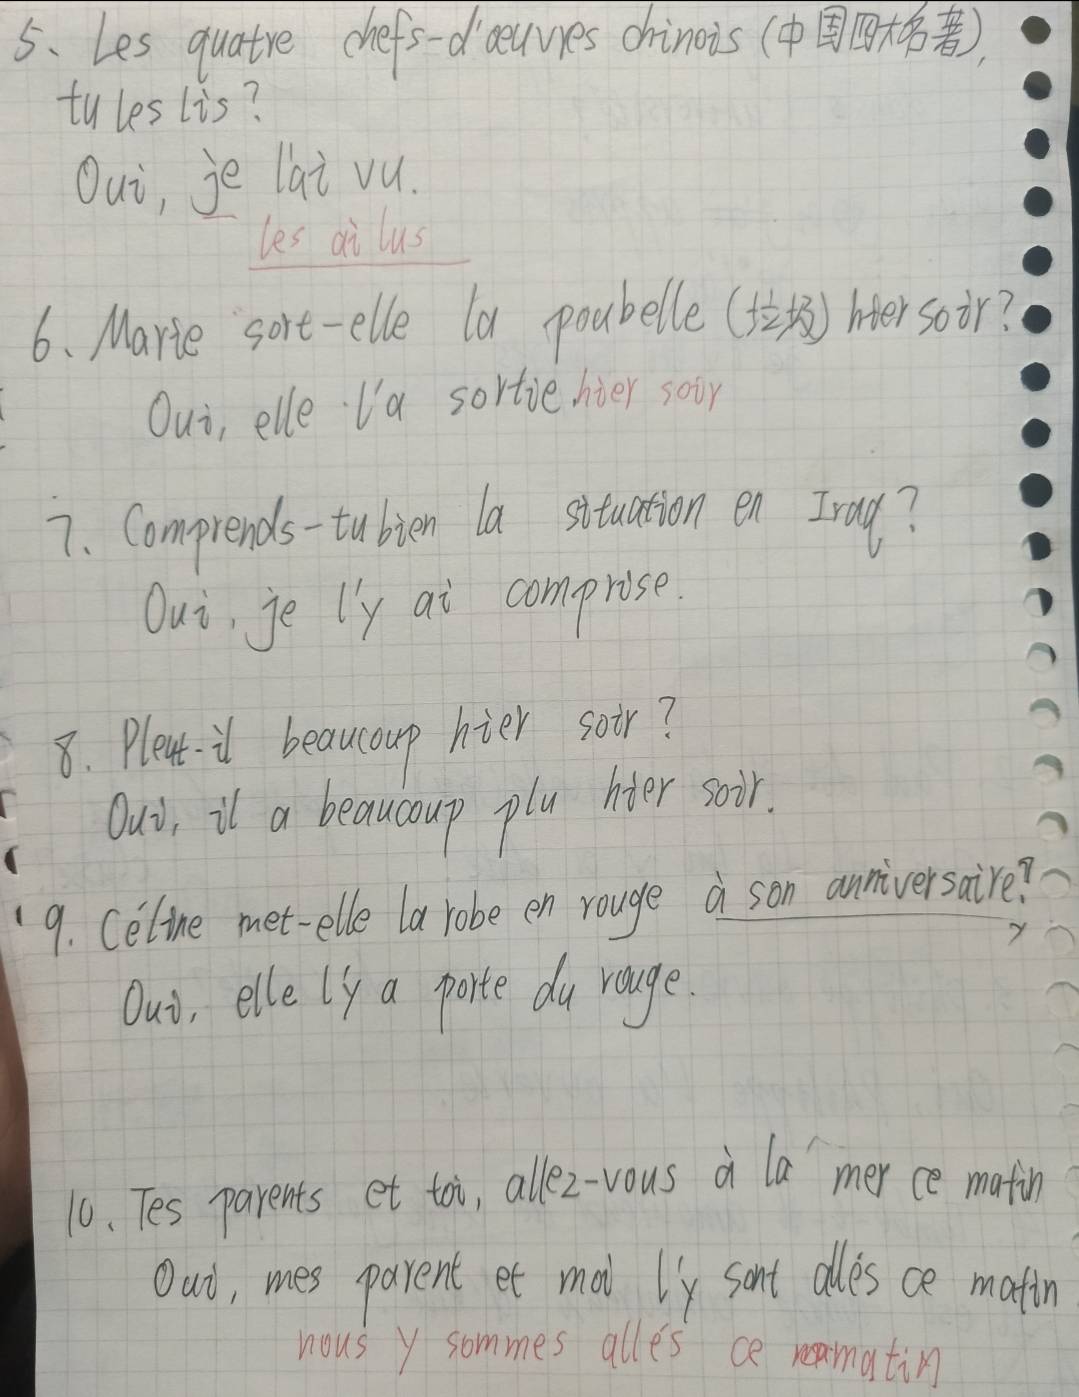 5、Les quatre chefs-d'œuvres chinois (中国四大名著),
tu les lis?
Oui, je l'ai vu.
les ai lus
6、Marie sort-elle la poubelle (垃圾) hier soir?
Oui, elle l'a sortie hier soir
7. Comprends-tu bien la situation en Iraq?
Oui, je l'y ai comprise.
8. Pleut-il beaucoup hier soir?
Oui, il a beaucoup plu hier soir.
9. Céline met-elle la robe en rouge à son anniversaire?
y
Oui, elle l'y a porte du rouge.
10、Tes parents et toi, allez-vous à la mer ce matin
Oui, mes parent et moi l'y sont allés ce matin
nous y sommes allés ce matin